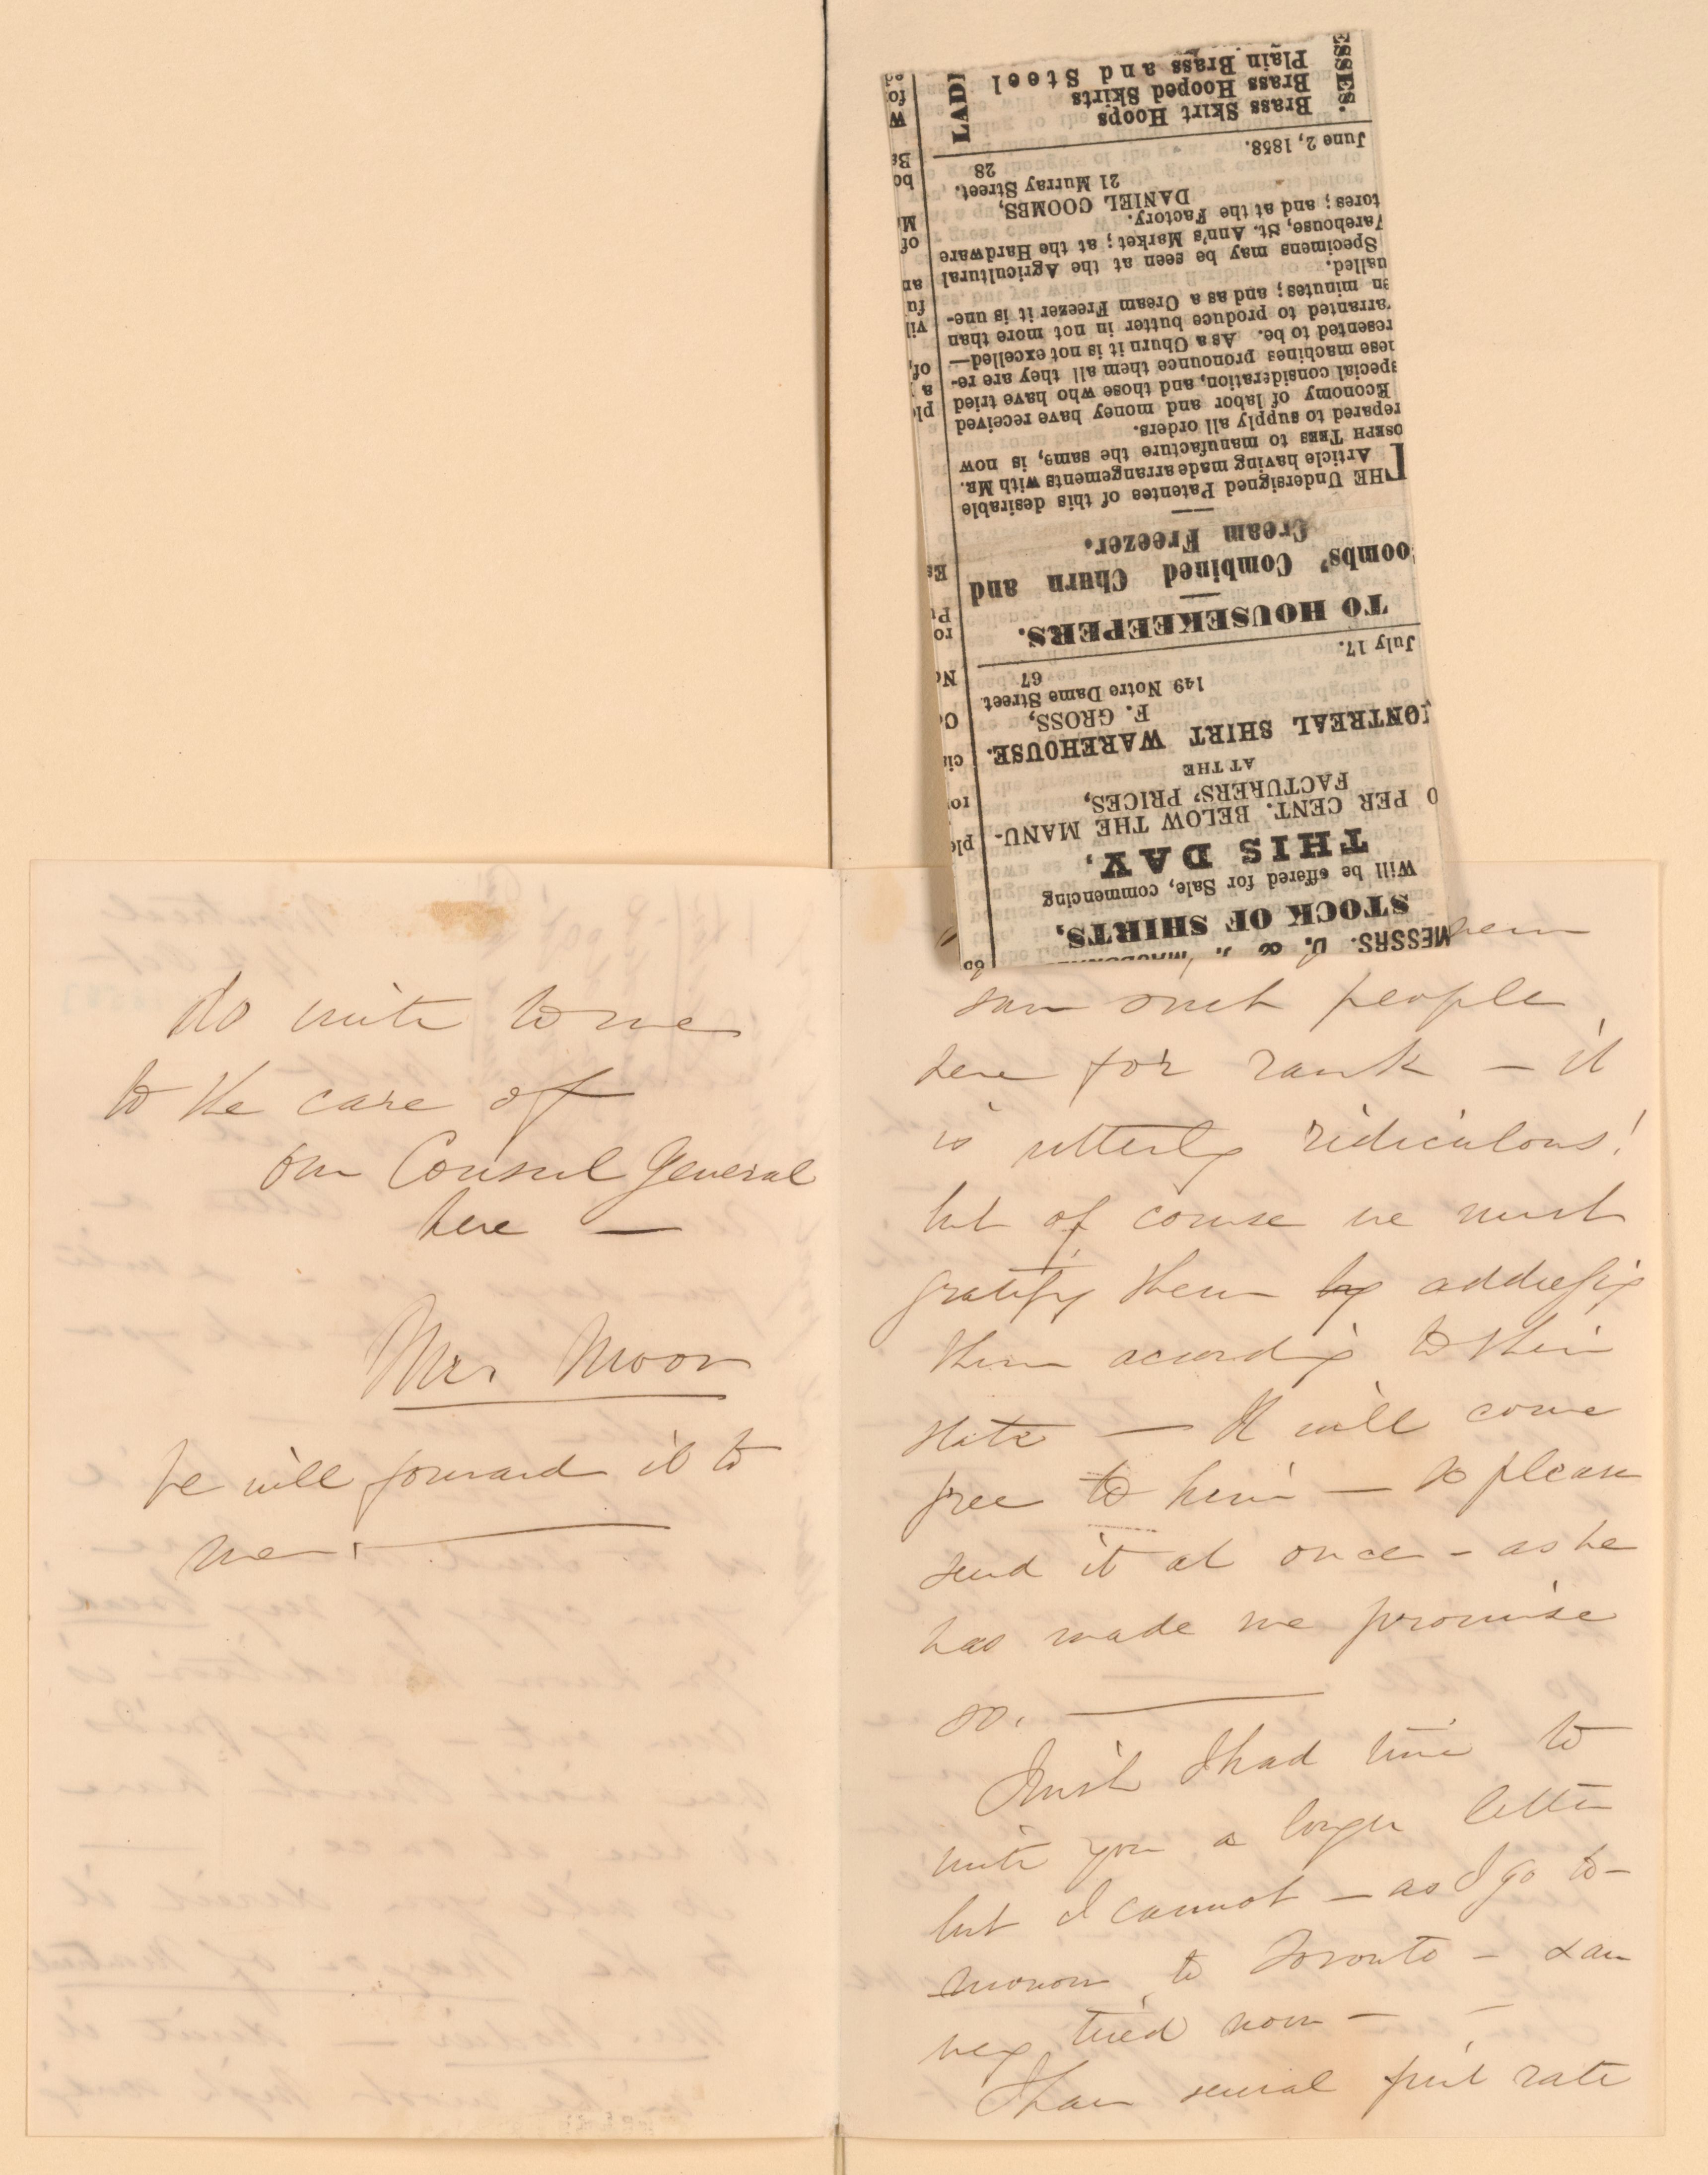 do write to me
to the care of
our Consul General
here —
Mr. Moor
he will forward it to
me. —
MESSRS.
STOCK OF SHIRTS,
Will be offered for Sale, commencing
THIS DAY,
0 PER CENT. BELOW THE MANU-
FACTURERS' PRICES,
AT THE
ONTREAL SHIRT WAREHOUSE.
F. GROSS,
149 Notre Dame Street.
July 17. 67
TO HOUSEKEEPERS.
oombs' Combined Churn and
Cream Freezer.
THE Undersigned Patentee of this desirable
Article having made arrangements with MR.
OSEPH TEES to manufacture the same, is now
repared to supply all orders.
Economy of labor and money have received
special consideration, and those who have tried
hese machines pronounce them all they are re-
resented to be. As a Churn it is not excelled—
arranted to produce butter in not more than
en minutes; and as a Cream Freezer it is une-
ualled.
Specimens may be seen at the Agricultural
Varehouse, St. Ann's Market; at the Hardware
tores; and at the Factory.
DANIEL COOMBS,
21 Murray Street.
June 2, 1858. 28
Brass Skirt Hoops
Brass Hooped Skirts
Plain Brass and Steel
LADI
ESSES.
saw such people
here for rank — it
is utterly ridiculous!
but of course we must
gratify them by addressig
them accordig to their
state — It will come
free to him — so please
send it at once — as he
has made me promise
so. —
I wish I had time to
write you a longer letter
but I cannot — as I go to-
morrow to Toronto — & am
very tired now —
I have several first rate